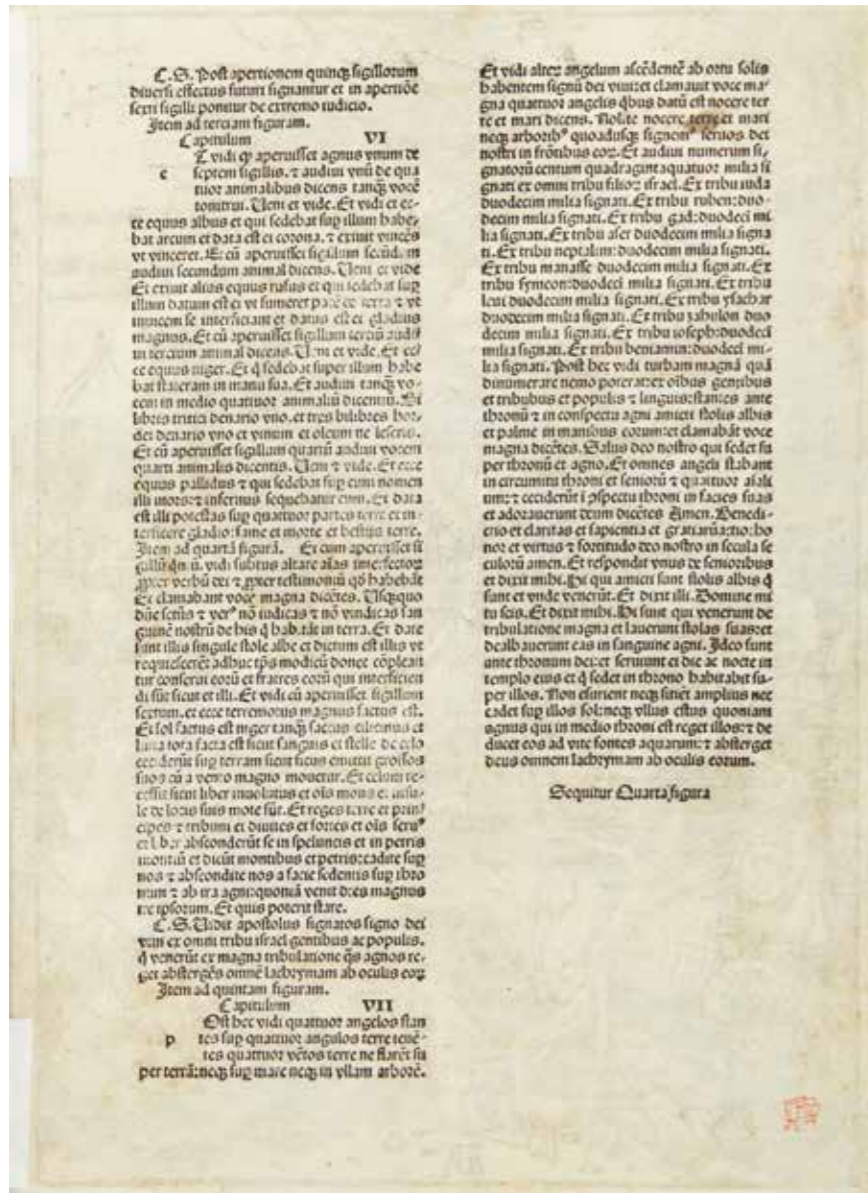 C.S. Post apertionem quinqȝ sigillorum
diuersi effectus futuri signantur et in apertiōe
sexti sigilli ponitur de extremo iudicio.
Item ad terciam figuram.
Capitulum VI
T vidi qꝫ aperuisset agnus vnum de
e septem sigillis. ⁊ audiui vnū de qua
tuor animalibus dicens tanqȝ vocē
tonitrui. Ueni et vide. Et vidi et ec-
ce equus albus et qui sedebat sup illum habe-
bat arcum et data est ei corona. ⁊ exiuit vincēs
vt vinceret. Et cū aperuisset sigillum secūd. in
audiui secundum animal dicens. Ueni et vide
Et exiuit alius equus rufus et qui sedebat sup
illum datum est ei vt sumeret pacē de terra ⁊ vt
inuicem se interficiant et datus est ei gladius
magnus. Et cū aperuisset sigillum terciū audiui
tercium animal dicens. Ueni et vide. Et ec/
ce equus niger. Et q̄ sedebat super illum habe
bat stateram in manu sua. Et audiui tanqȝ vo-
cem in medio quattuor animaliū dicentiū. Bi
libris tritici denario vno. et tres bilibres hor-
dei denario vno et vinum et oleum ne leseris.
Et cū aperuisset sigillum quartū audiui vocem
quarti animalis dicentis. Ueni ⁊ vide. Et ecce
equus pallidus ⁊ qui sedebat sup eum nomen
illi mors: ⁊ infernus sequebatur eum. Et data
est illi potestas sup quattuor partes terre et in-
terficere gladio: fame et morte et bestiis terre.
Item ad quartā figurā. Et cum aperuisset si
gillū qn̄ū. vidi subtus altare aīas interfectoꝝ
ꝓpter verbū dei ⁊ ꝓpter testimoniū qd̄ habebāt
Et clamabant voce magna dicētes. Usqȝquo
dn̄e sctūs ⁊ ver⁹ nō iudicas ⁊ nō vindicas san
guinē nostrū de his q̄ habitāt in terra. Et date
sunt illis singule stole albe et dictum est illis vt
requiescerēt adhuc tp̄s modicū donec cōpleant
tur conserui eorū et fratres eorū qui interficien
di sūt sicut et illi. Et vidi cū aperuisset sigillum
sextum. et ecce terremotus magnus factus est.
Et sol factus est niger tanqȝ saccus cilicinus et
luna tota facta est sicut sanguis et stelle de celo
ceciderūt sup terram sicut ficus emittit grossos
suos cū a vento magno mouetur. Et celum re-
cessit sicut liber inuolutus et oīs mons et insu-
le de locis suis mote sūt. Et reges terre et prin/
cipes ⁊ tribuni et diuites et fortes et oīs seru⁹
et liber absconderūt se in speluncis et in petris
montiū et dicūt montibus et petris: cadite sup
nos ⁊ abscondite nos a facie sedentis sup thro
num ⁊ ab ira agni: quoniā venit dies magnus
ire ipsorum. Et quis poterit stare.
C.S. Uidit apostolus signatos signo dei
viui ex omni tribu israel gentibus ac populis.
q̄ venerūt ex magna tribulatione q̄s agnos re-
get abstergēs omnē lachrymam ab oculis eoꝝ
Item ad quintam figuram.
Capitulum VII
Ost hec vidi quattuor angelos stan
p tes sup quattuor angulos terre tenē-
tes quattuor vētos terre ne flarēt su
per terrā: neqȝ sup mare neqȝ in vllam arborē.
Et vidi alteꝝ angelum ascēdentē ab ortu solis
habentem signū dei viui: et clamauit voce ma-
gna quattuor angelis q̄bus datū est nocere ter
re et mari dicens. Nolite nocere terre et mari
neqȝ arborib⁹ quoadusqȝ signem⁹ seruos dei
nostri in frōtibus eoꝝ. Et audiui numerum si-
gnatorū centum quadragintaquatuor milia si
gnati ex omni tribu filioꝝ israel. Ex tribu iuda
duodecim milia signati. Ex tribu ruben: duo-
decim milia signati. Ex tribu gad: duodeci mi
lia signati. Ex tribu aser duodecim milia signa
ti. Ex tribu neptalim: duodecim milia signati.
Ex tribu manasse duodecim milia signati. Ex
tribu symeon: duodeci milia signati. Ex tribu
leui duodecim milia signati. Ex tribu ysachar
duodecim milia signati. Ex tribu zabulon duo
decim milia signati. Ex tribu ioseph: duodeci
milia signati. Ex tribu beniamin: duodeci mi-
lia signati. Post hec vidi turbam magnā quā
dinumerare nemo poterat: ex oībus gentibus
et tribubus et populis ⁊ linguis: stantes ante
thronū ⁊ in conspectu agni amicti stolis albis
et palme in manibus eorum: et clamabāt voce
magna dicētes. Salus deo nostro qui sedet su
per thronū et agno. Et omnes angeli stabant
in circuitu throni et seniorū ⁊ quattuor aīali
um: ⁊ ceciderūt ī ꝓspectu throni in facies suas
et adorauerunt deum dicētes Amen. Benedi-
ctio et claritas et sapientia et gratiarū actio: ho
nor et virtus ⁊ fortitudo deo nostro in secula se
culorū amen. Et respondit vnus de senioribus
et dixit mihi. Hi qui amicti sunt stolis albis q̄
sunt et vnde venerūt. Et dixit illi. Domine mi
tu scis. Et dixit mihi. Hi sunt qui venerunt de
tribulatione magna et lauerunt stolas suas: et
dealbauerunt eas in sanguine agni. Ideo sunt
ante thronum dei: et seruiunt ei die ac nocte in
templo eius et q̄ sedet in throno habitabit su-
per illos. Non esurient neqȝ sitiēt amplius nec
cadet sup illos sol: neqȝ vllus estus quoniam
agnus qui in medio throni est reget illos: ⁊ de
ducet eos ad vite fontes aquarum: ⁊ absterget
deus omnem lachrymam ab oculis eorum.
Sequitur Quarta figura